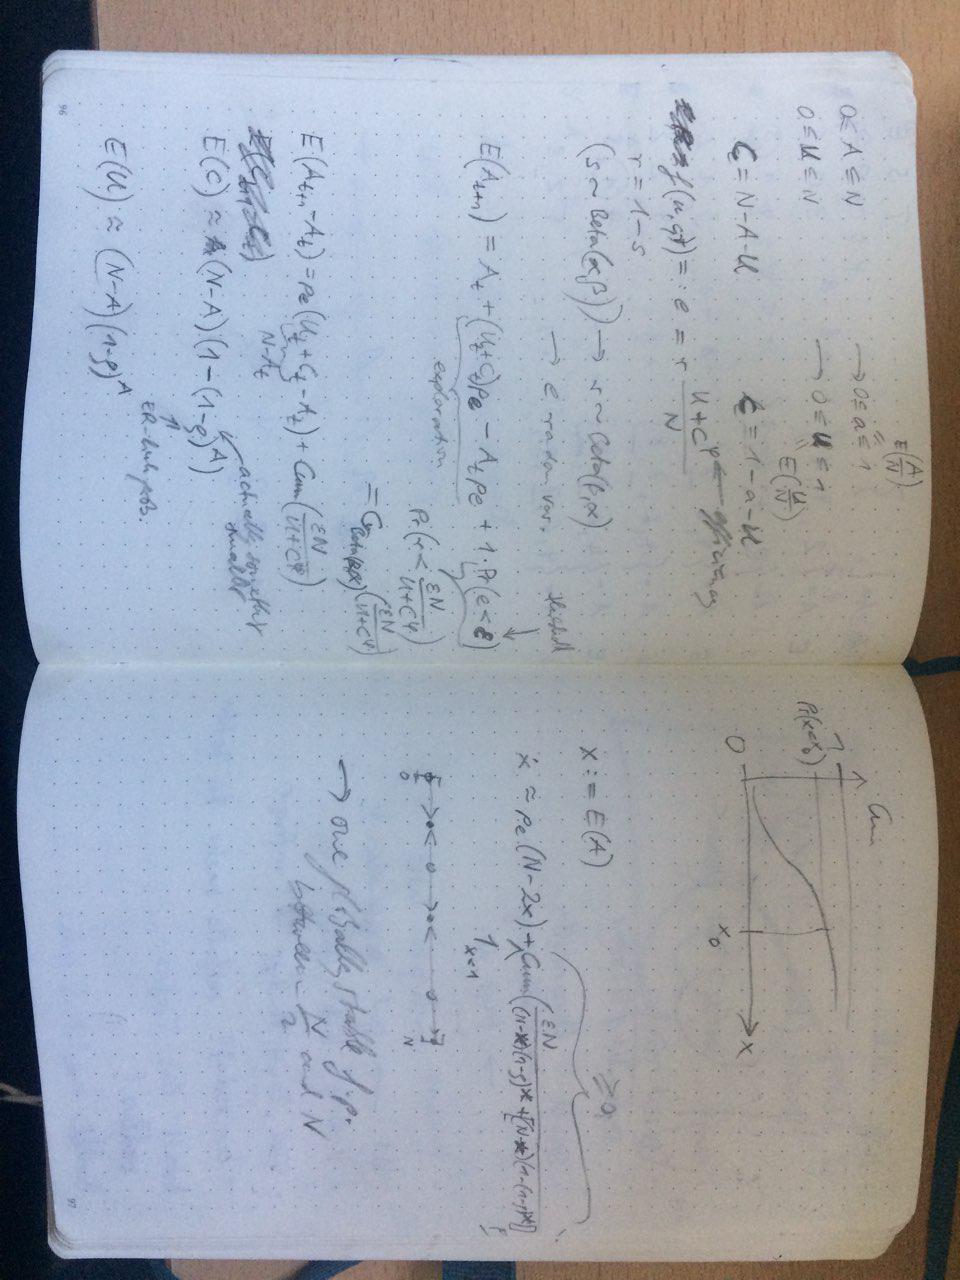 0 ≤ A ≤ N → 0 ≤ a ≤ 1
E(A/N)
0 ≤ U ≤ N → 0 ≤ u ≤ 1
E(U/N)
C = N-A-U
c = 1-a-u
=: e = r (U+Cφ)/N ← efficiency
r = 1-s
(s ~ Beta(α,β)) → r ~ Beta(β,α)
→ e random var.
threshold
E(A_{t+1}) = A_t + (U_t+C_t)pe - A_t pe + 1·Pr(e<ε)
exploration
Pr(r < εN/(U+Cφ))
= C_{Beta(β,α)}(εN/(U+Cφ))
E(A_{t+1} - A_t) = pe(U_t + C_t - A_t) + Cum(εN/(U+Cφ))
N-A_t
E(C) ≈ (N-A)(1-(1-ρ)^A)
actually something smaller
ER-link prob.
E(U) ≈ (N-A)(1-ρ)^A
96
Cum
1
Pr(x<x₀)
0
x₀
x
x := E(A)
≥ 0
ẋ ≈ pe(N-2x) + Cum(εN/((N-x)(1-ρ)^x + [(N-x)(1-(1-ρ)^x]
1_{x<1}
0
N
→ one globally stable f.p.
between N/2 and N
97